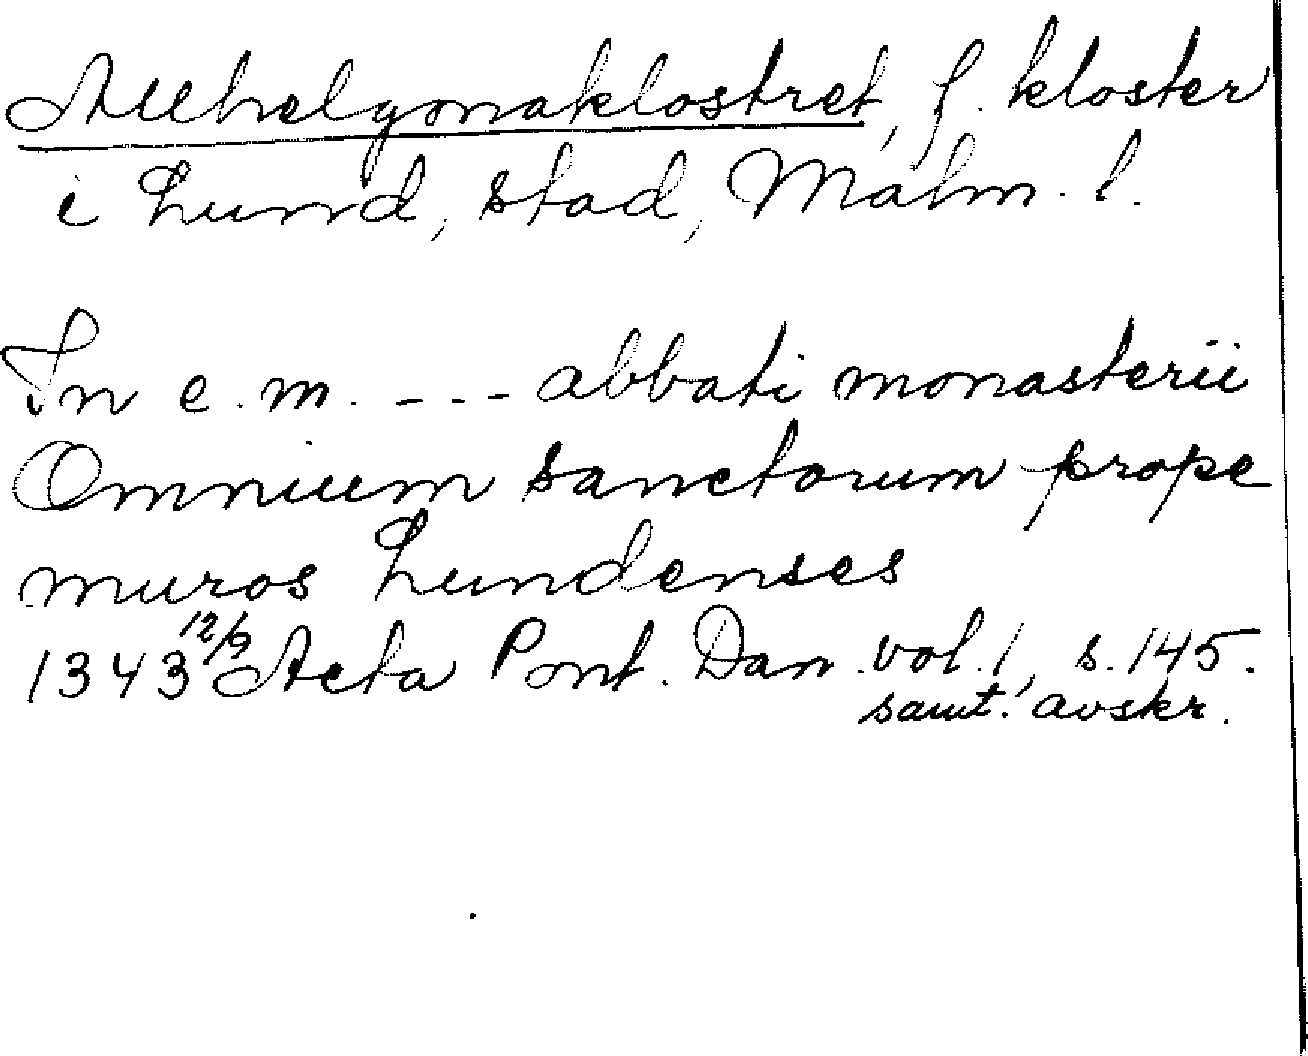 Allhelgonaklostret, f. kloster
i Lund, stad, Malm. l.
In e. m. --- abbati monasterii
Omnium sanctorum prope
muros Lundenses
1343 12/9 Acta Pont. Dan. vol. 1, s. 145.
samt. avskr.